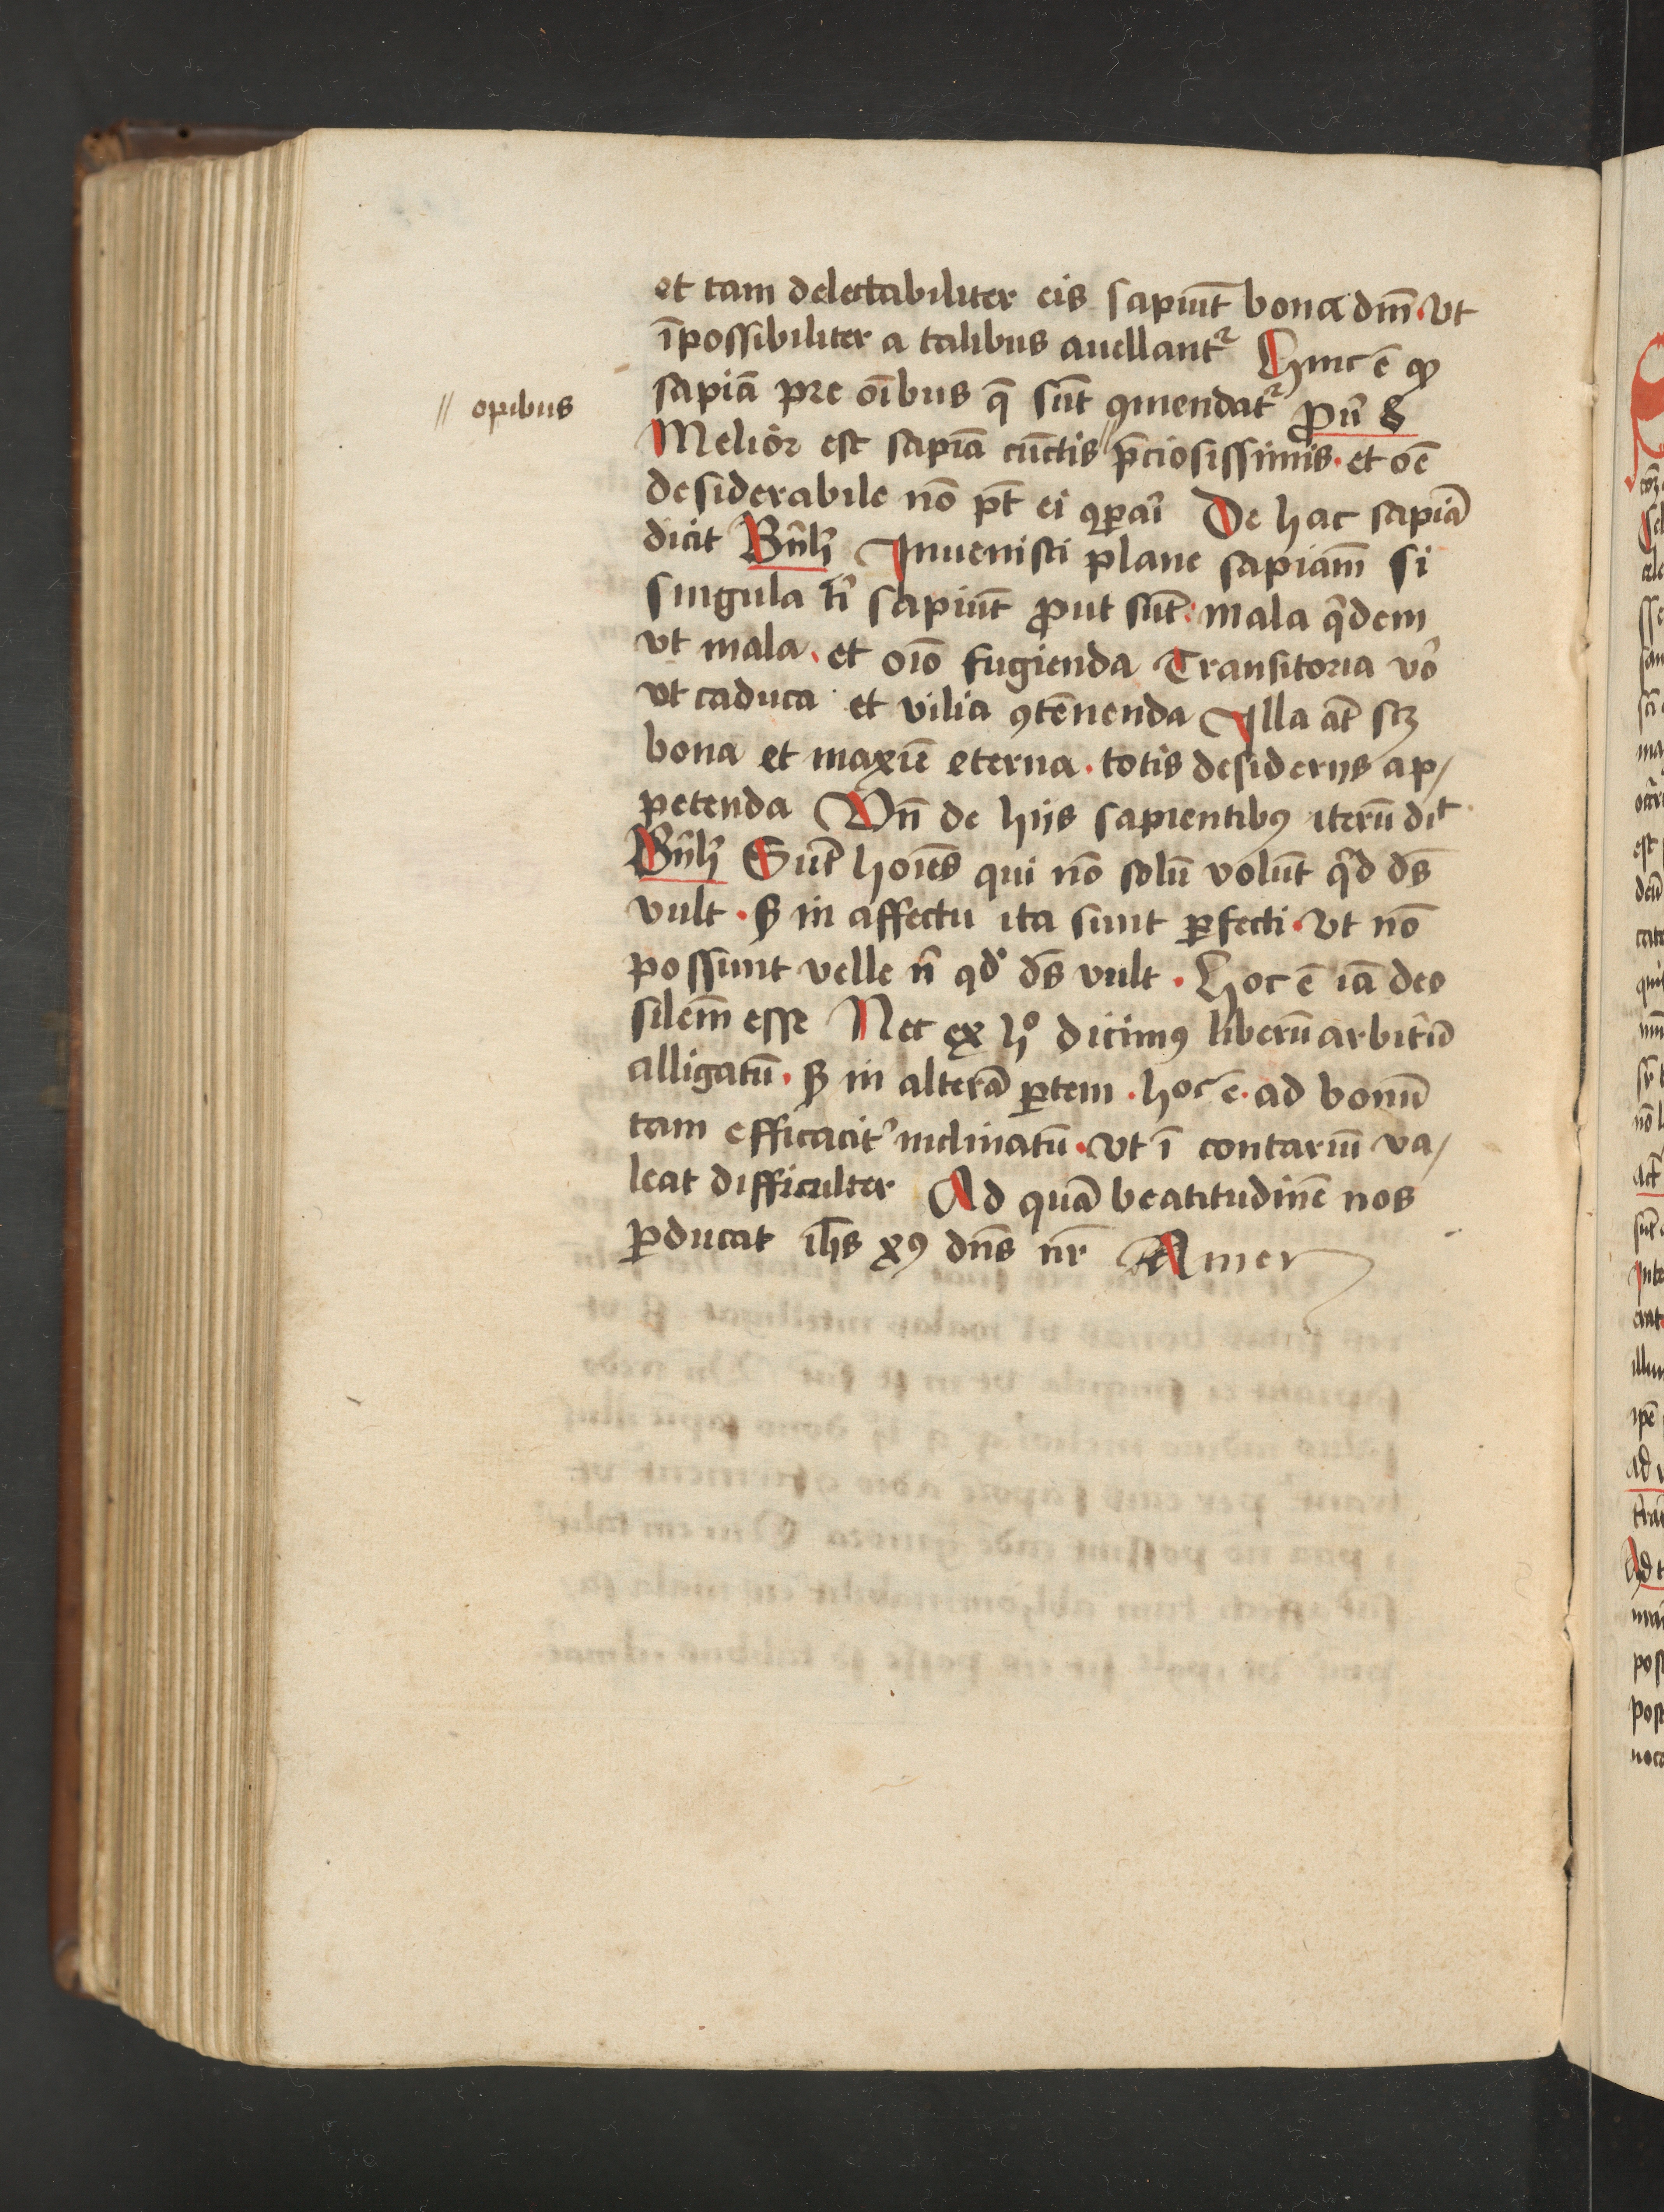 et tam delectabiliter eis sapiūt bona dm̄ . vt
īpossibiliter a talibus auellantᷣ Hinc ē ꝙ
sapiā pre oībus q̄ sūt ꝯmendatᷣ ꝓuͥ 8
// opibus
Melior est sapiā cūctis // p̄ciosissimis . et oē
desiderabile nō pt̄ ei ꝯꝑaͥ De hac sapiā
dicit Bn̄h Inuenisti plane sapiam̄ si
singula tͥ sapiūt ꝓut sūt : mala qͥdem
vt mala . et oīo fugienda Transitoria vͦo
vt caduca . et vilia ꝯtēnenda Illa at̄ scꝫ
bona et maxīe eterna . totis desiderijs ap/
petenda Vn̄ de hijs sapientibꝰ iterū dīt
Bn̄h Sūt hoīes qui nō solū volūt qͥd ds̄
vult . sꝫ in affectu ita sunt ꝑfecti . vt nō
possunt velle nͥ qdͦ ds̄ vult . Hoc ē iā deo
silem̄ esse Nec ex hͦ dicimꝰ liberū arbitͥū
alligatū . sꝫ in alterā ꝑtem . hoc ē . ad bonū
tam efficacitͬ inclinatū . vt ī contariū va/
leat difficulter Ad quā beatitudinē nos
ꝑducat ih̄s xꝰ dn̄s nr̄ Amen